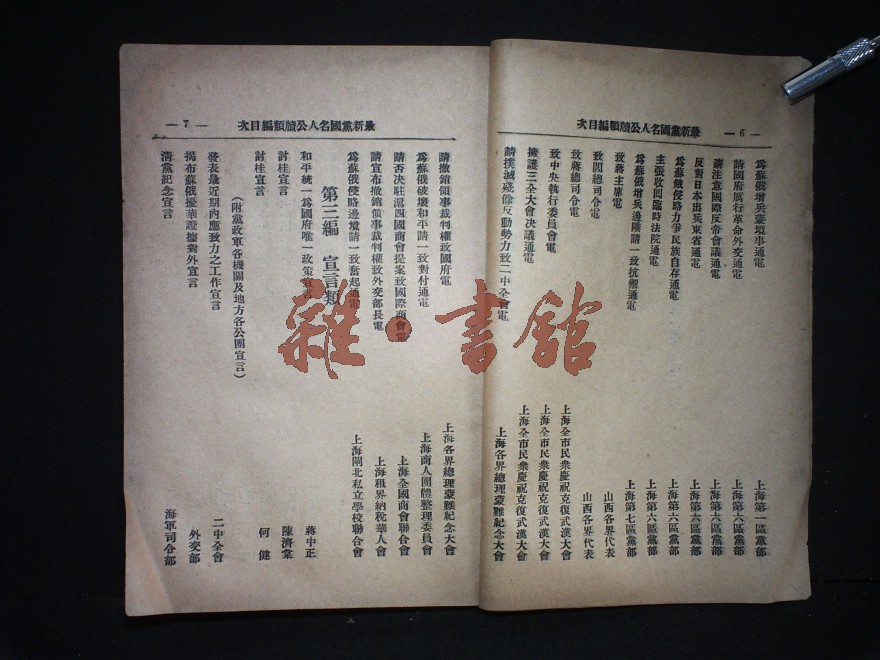 最新黨國名人公牘類編目次
— 6 —
為蘇俄增兵寇境事通電　上海第一區黨部
請國府厲行革命外交通電　上海第六區黨部
請注意國際反帝會議通電　上海第六區黨部
反對日本出兵東省通電　上海第六區黨部
為蘇俄侵略力爭民族自存通電　上海第六區黨部
主張收回臨時法院通電　上海第六區黨部
為蘇俄增兵邊陲請一致抗禦通電　上海第七區黨部
致蔣主席電　山西各界代表
致閻總司令電　山西各界代表
致蔣總司令電　上海全市民衆慶祝克復武漢大會
致中央執行委員會電　上海全市民衆慶祝克復武漢大會
擁護三全大會決議通電　上海全市民衆慶祝克復武漢大會
請撲滅殘餘反動勢力致二中全會電　上海各界總理蒙難紀念大會
最新黨國名人公牘類編目次
— 7 —
請撤銷領事裁判權致國府電　上海各界總理蒙難紀念大會
為蘇俄破壞和平請一致對付通電　上海商人團體整理委員會
請否決駐滬四國商會提案致國際商會電　上海全國商會聯合會
請宣布撤銷領事裁判權致外交部長電　上海租界納稅華人會
為蘇俄侵略邊境請一致奮起通電　上海閘北私立學校聯合會
第三編　宣言類
和平統一為國府唯一政策宣言　蔣中正
討桂宣言　陳濟棠
討桂宣言　何　健
（附黨政軍各機關及地方各公團宣言）
發表最近期內應致力之工作宣言　二中全會
揭布蘇俄擾華證據對外宣言　外交部
清黨紀念宣言　海軍司令部
雜·書館